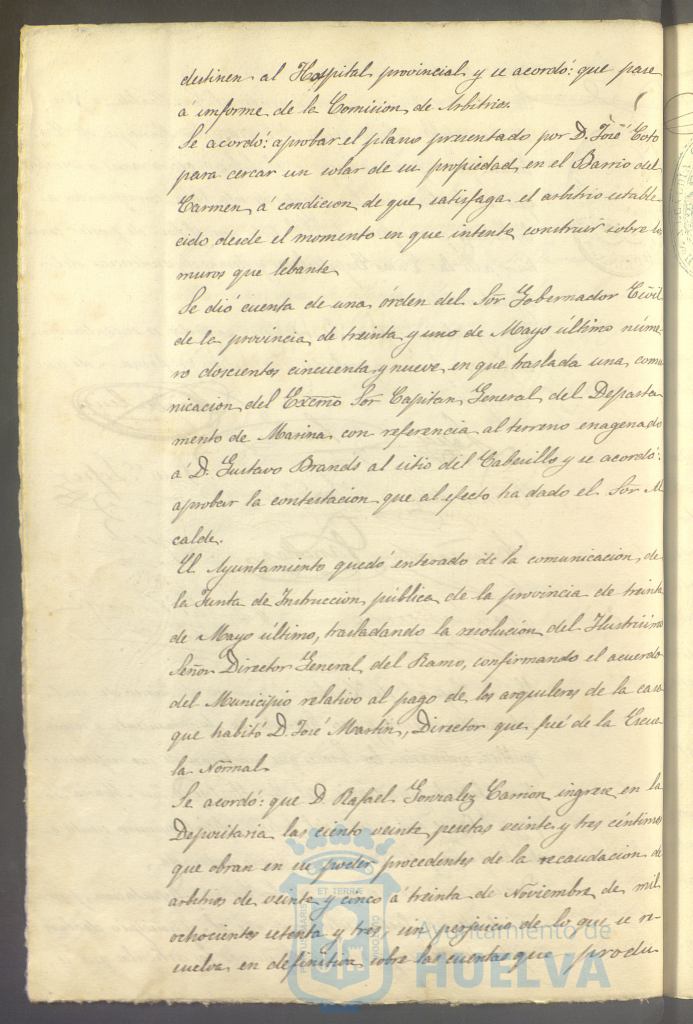 destinen al Hospital provincial y se acordó: que pase
á informe de la Comision de Arbitrios.
Se acordó: aprobar el plano presentado por D. José Coto
para cercar un solar de su propiedad en el Barrio del
Carmen á condicion de que satisfaga el arbitrio estable-
cido desde el momento en que intente construir sobre los
muros que lebante.
Se dió cuenta de una órden del Sor Gobernador Civil
de la provincia de treinta y uno de Mayo último núme-
ro doscientos cincuenta y nueve, en que traslada una comu-
nicacion del Excmo Sor Capitan General del Departa-
mento de Marina con referencia al terreno enagenado
á D. Gustavo Brands al sitio del Cabesillo y se acordó:
aprobar la contestacion que al efecto ha dado el Sor Al
calde.
El Ayuntamiento quedó enterado de la comunicacion de
la Junta de Instruccion pública de la provincia de treinta
de Mayo último, trasladando la resolucion del Ilustrisimo
Señor Director General del Ramo, confirmando el acuerdo
del Municipio relativo al pago de los arquileres de la casa
que habitó D. José Martin, Director que fué de la Escue
la Normal.
Se acordó: que D. Rafael Gonzalez Carrion ingrese en la
Depositaria las ciento veinte pesetas veinte y tres céntimos
que obran en su poder procedentes de la recaudacion de
arbitrios de veinte y cinco á treinta de Noviembre de mil
ochocientos setenta y tres sin perjuicio de lo que se re-
suelva en definitiva sobre las cuentas que produ-
ET TERRÆ
Ayuntamiento de
HUELVA